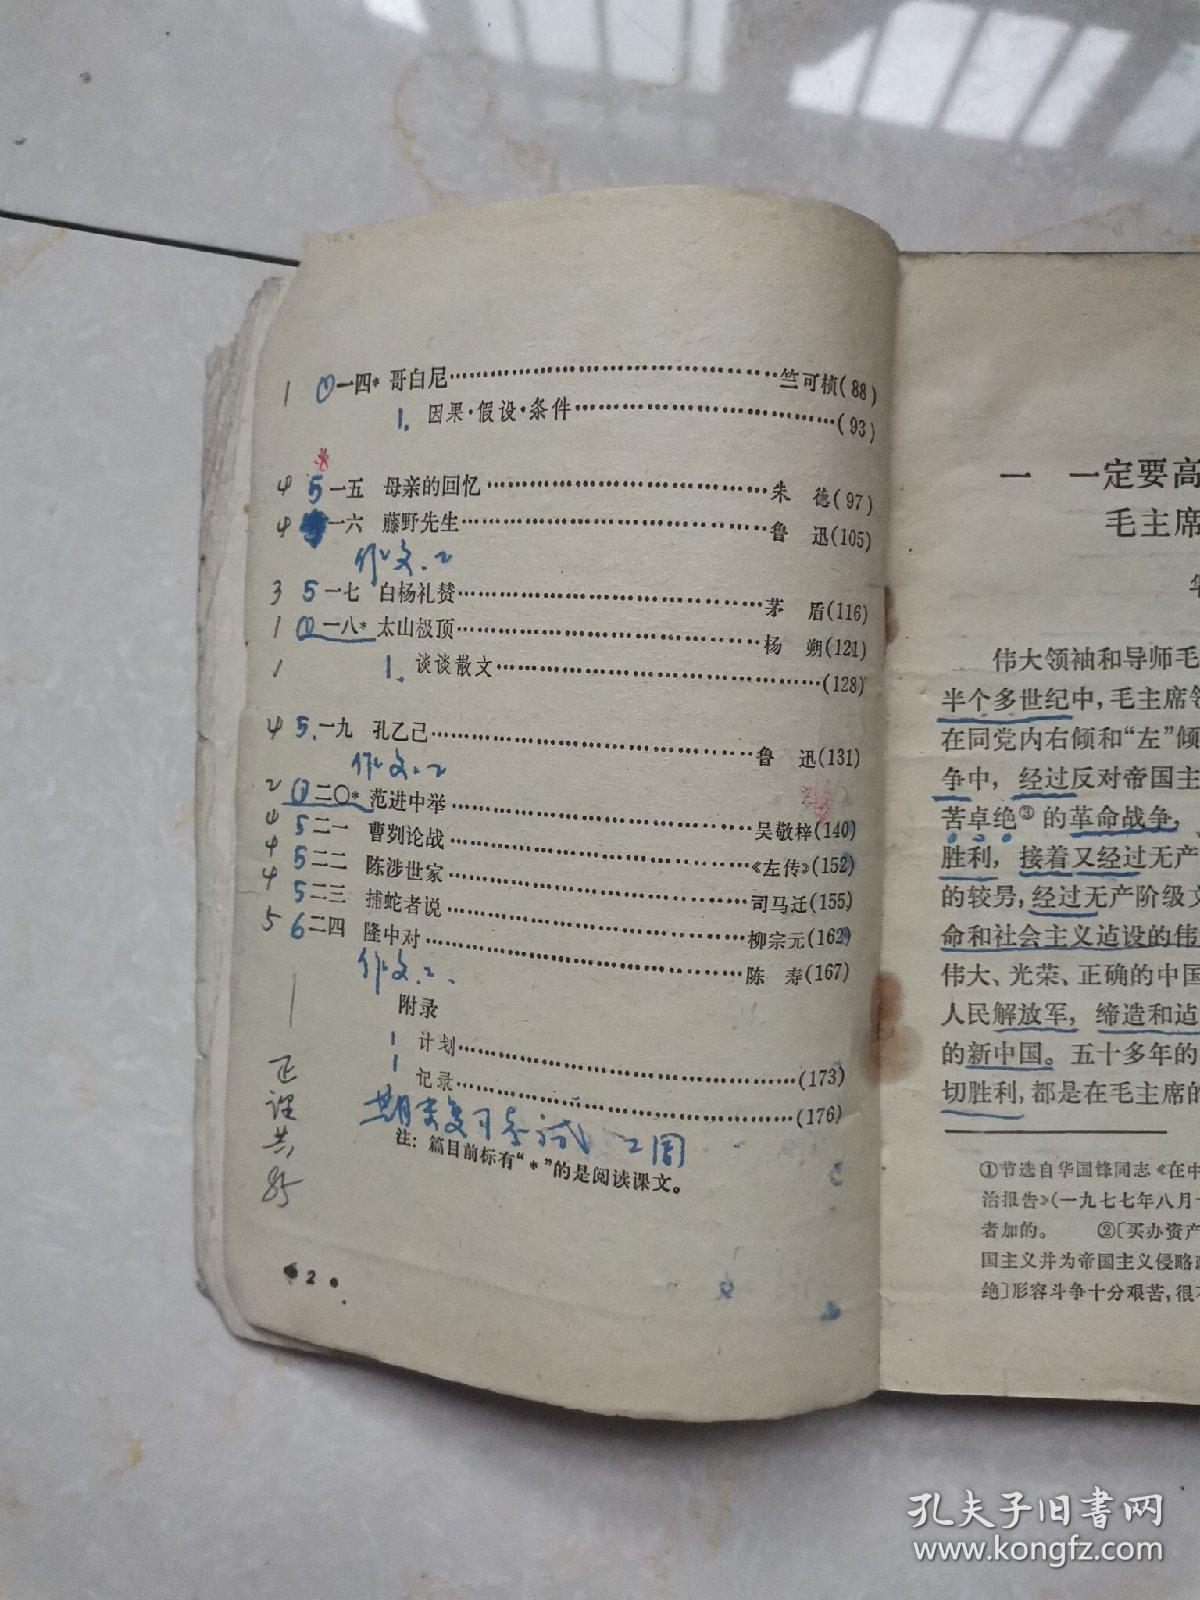 1 ①一四* 哥白尼……竺可桢(88)
1. 因果·假设·条件……(93)
4 5 一五 母亲的回忆……朱 德(97)
4 一六 藤野先生……鲁 迅(105)
作文.2
3 5 一七 白杨礼赞……茅 盾(116)
1 ①一八* 太山极顶……杨 朔(121)
1 1. 谈谈散文……(128)
4 5. 一九 孔乙己……鲁 迅(131)
作文.2
2 ①二〇* 范进中举……吴敬梓(140)
4 5 二一 曹刿论战……《左传》(152)
4 5 二二 陈涉世家……司马迁(155)
4 5 二三 捕蛇者说……柳宗元(162)
5 6 二四 隆中对……陈 寿(167)
作文.2.
附录
1 计划……(173)
1 记录……(176)
期末复习考试 2周
注：篇目前标有“*”的是阅读课文。
正课共
85
• 2 •
一 一定要高
毛主席
华
伟大领袖和导师毛
半个多世纪中，毛主席领
在同党内右倾和“左”倾
争中，经过反对帝国主
苦卓绝③的革命战争，
胜利，接着又经过无产
的较量，经过无产阶级文
命和社会主义建设的伟
伟大、光荣、正确的中国
人民解放军，缔造和建
的新中国。五十多年的
切胜利，都是在毛主席的
①节选自华国锋同志《在中
治报告》(一九七七年八月十
者加的。 ②〔买办资产
国主义并为帝国主义侵略政
绝〕形容斗争十分艰苦，很不
孔夫子旧书网
www.kongfz.com